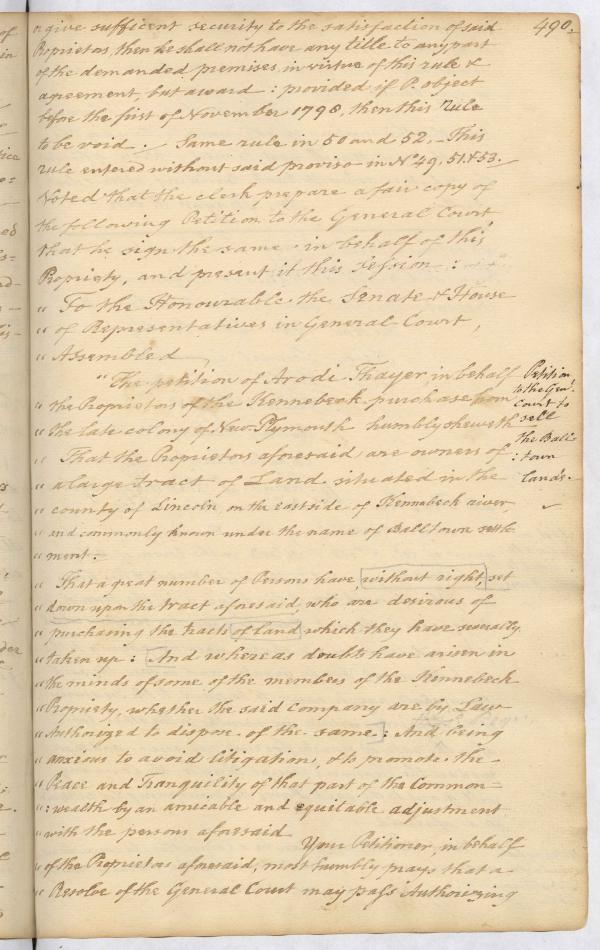 490.
or give sufficent security to the satisfaction of said
Proprietors, then he shall not have any title to any part
of the demanded premises, in virtue of this rule &
agreement, but award : provided if P. object
before the first of November 1798, then this rule
to be void. Same rule in 50 and 52. This
rule entered without said proviso in No 49, 51 & 53.
Voted that the clerk prepare a fair copy of
the following Petition to the General Court,
that he sign the same in behalf of this
Propriety, and present it this Session :
" To the Honourable the Senate & House
" of Representatives in General Court,
" Assembled
" The petition of Arodi Thayer, in behalf
" the Proprietors of the Kennebeck purchase from
" the late colony of New Plymouth humbly sheweth
" That the Proprietors aforesaid are owners of
" a large tract of Land situated in the
" county of Lincoln on the east side of Kennebeck river,
" and commonly known under the name of Balltown settle
" ment :
Petition
to the Genl.
Court to
sell
the Ball
: town
lands.
" That a great number of Persons have, without right, set
" down upon the tract aforesaid, who are desirous of
" purchasing the tracts of land which they have severally
" taken up : And whereas doubts have arisen in
" the minds of some of the members of the Kennebeck
" Propriety, whether the said Company are by Law
" Authorized to dispose of the same : And being
" anxious to avoid litigation, & to promote the
" Peace and Tranquility of that part of the Common=
" : wealth by an amicable and equitable adjustment
" with the persons aforesaid
Your Petitioner, in behalf
" of the Proprietors aforesaid, most humbly prays that a
" Resolve of the General Court may pass Authorizing